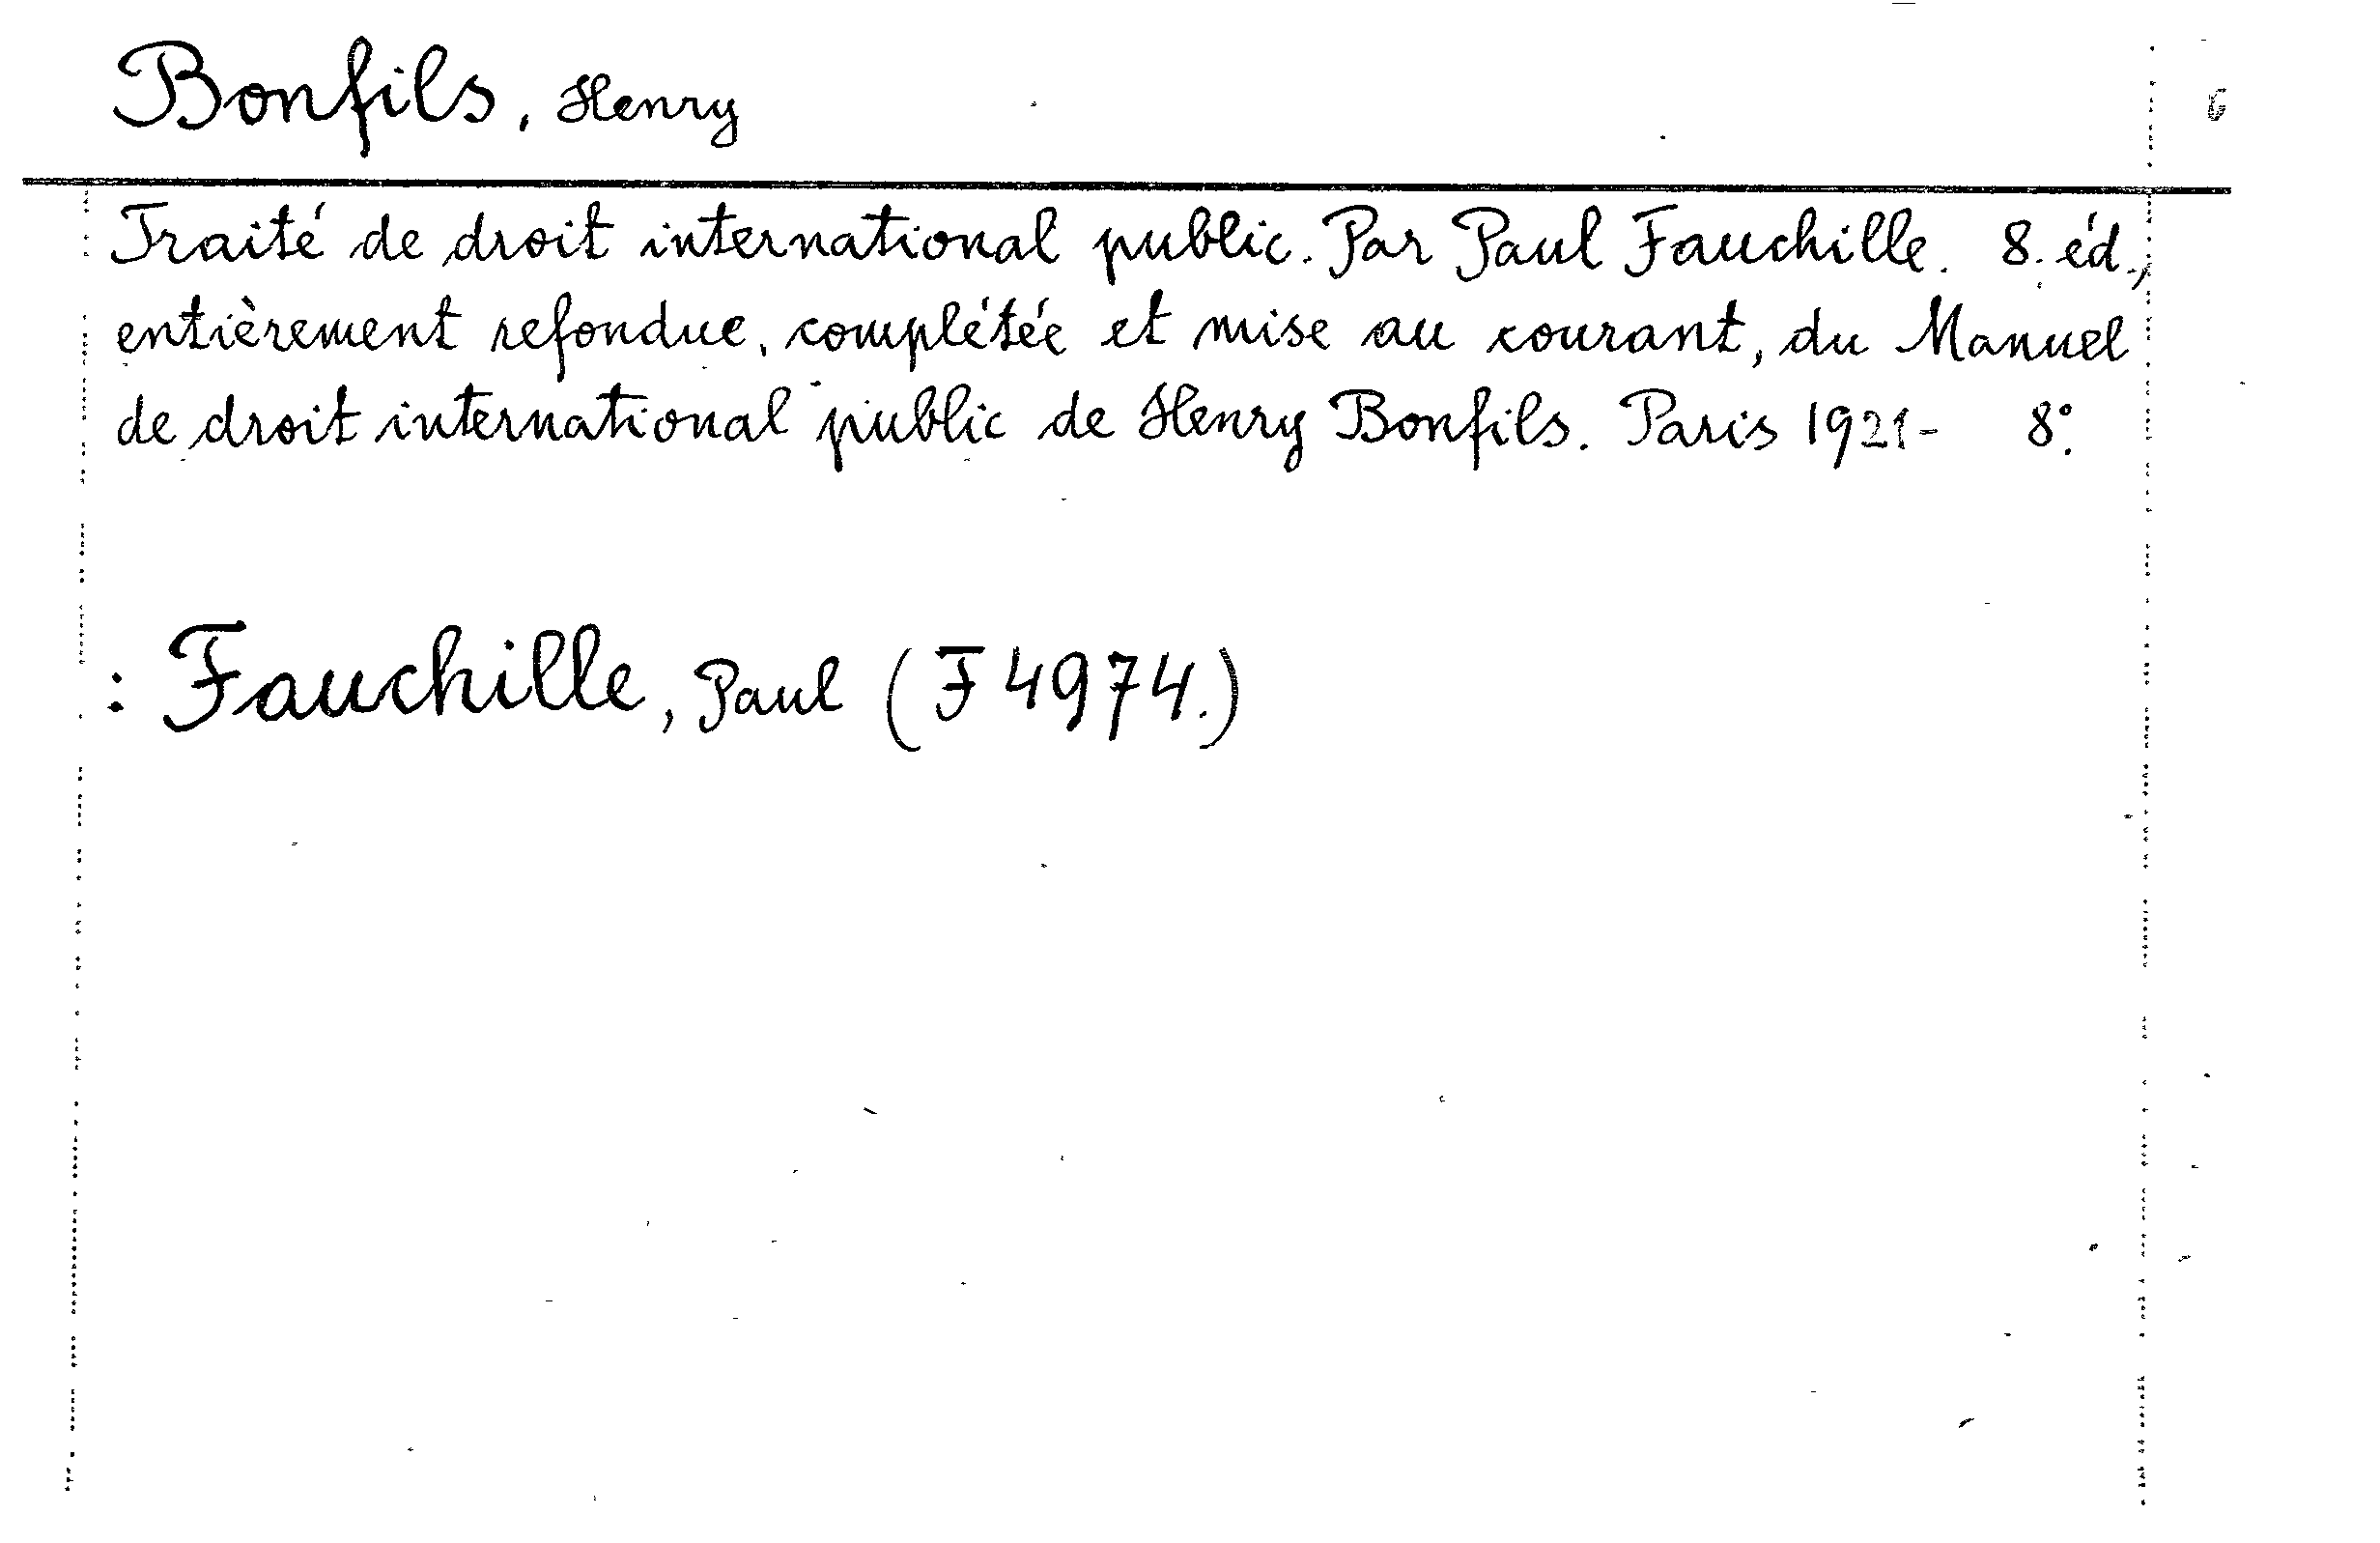 Bonfils, Henry
Traité de droit international public. Par Paul Fauchille. 8. éd.,
entièrement refondue, complétée et mise au courant, du Manuel
de droit international public de Henry Bonfils. Paris 1921- 8°.
: Fauchille, Paul (F 4974.)